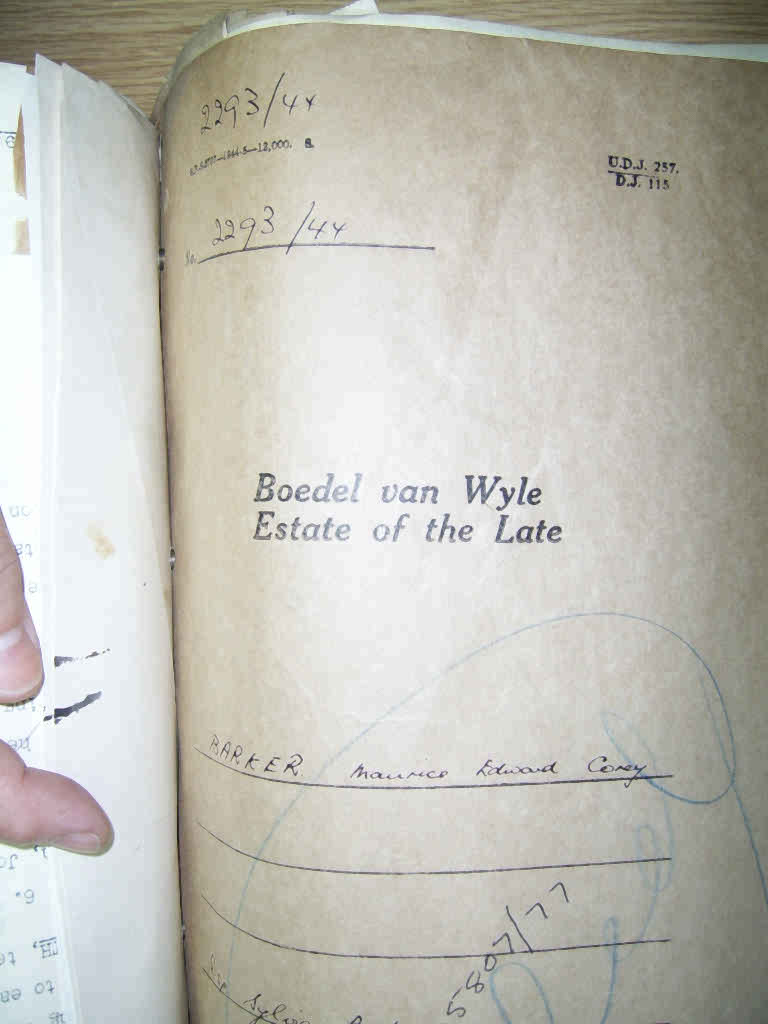 2293/44
12,000. S.
U.D.J. 257.
D.J. 115
No. 2293/44
Boedel van Wyle
Estate of the Late
BARKER Maurice Edward Corey
5807/77
Sylvia